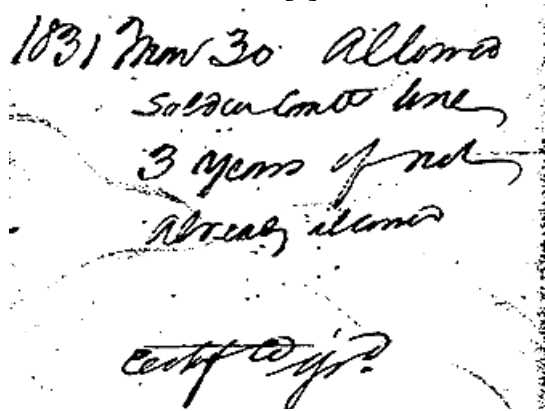 1831 Nov 30 Allowed
Soldier Contl line
3 years if not
already allowed